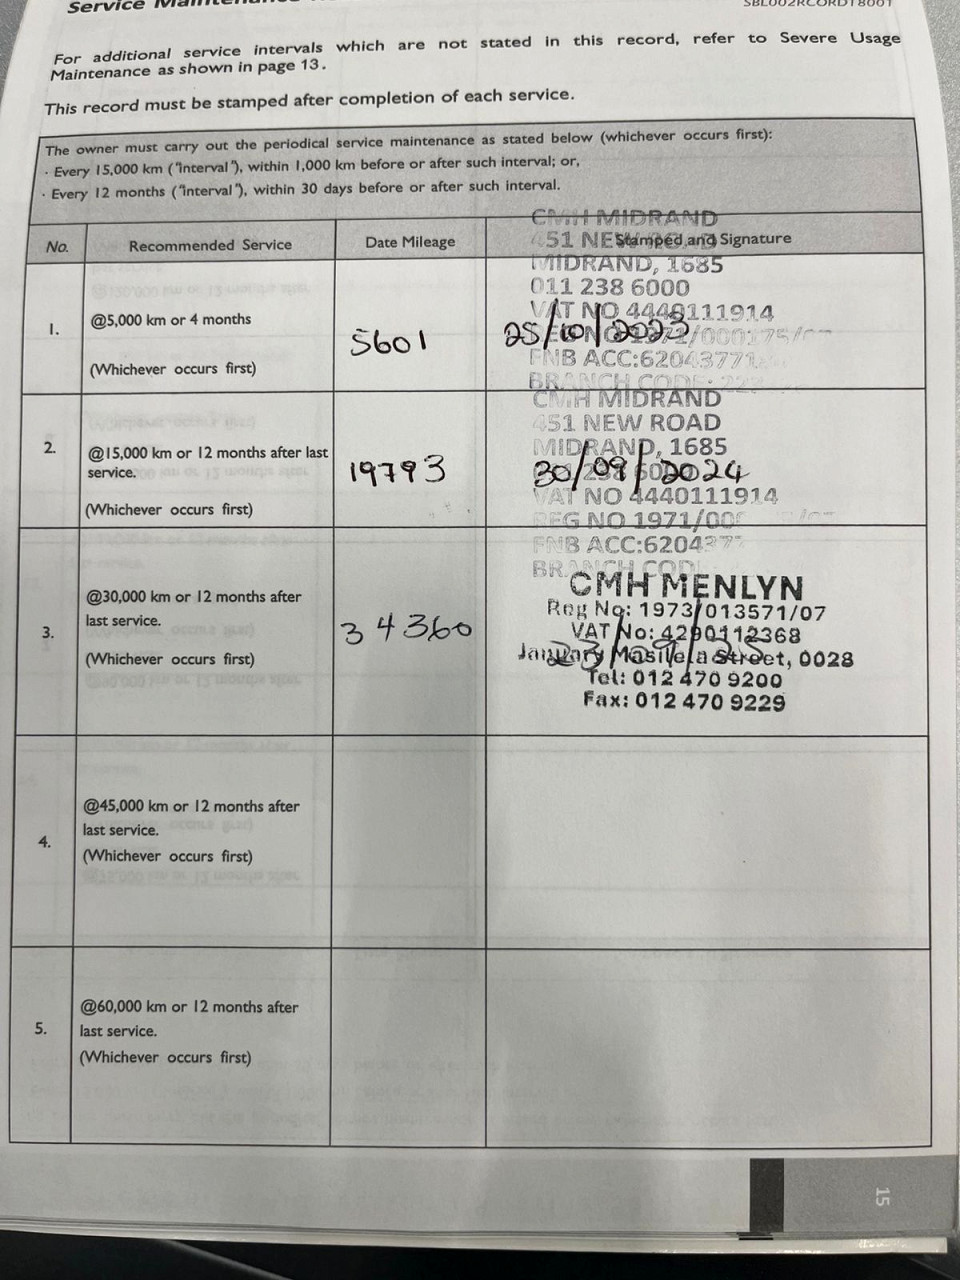 Service Maintenance
SBL002RCORD18001
For additional service intervals which are not stated in this record, refer to Severe Usage
Maintenance as shown in page 13.
This record must be stamped after completion of each service.
The owner must carry out the periodical service maintenance as stated below (whichever occurs first):
· Every 15,000 km ("interval"), within 1,000 km before or after such interval; or,
· Every 12 months ("interval"), within 30 days before or after such interval.
No.
Recommended Service
Date Mileage
Stamped and Signature
CMH MIDRAND
451 NEW ROAD
MIDRAND, 1685
011 238 6000
VAT NO 4440111914
REG NO 1971/000175/07
FNB ACC:62043771
BRANCH CODE:
1.
@5,000 km or 4 months
(Whichever occurs first)
5601
25/10/2023
2.
@15,000 km or 12 months after last
service.
(Whichever occurs first)
19793
CMH MIDRAND
451 NEW ROAD
MIDRAND, 1685
30/09/2024
VAT NO 4440111914
REG NO 1971/00
FNB ACC:6204377
BRANCH CODE
3.
@30,000 km or 12 months after
last service.
(Whichever occurs first)
34360
CMH MENLYN
Reg No: 1973/013571/07
VAT No: 4290112368
January Masilela Street, 0028
23/09/25
Tel: 012 470 9200
Fax: 012 470 9229
4.
@45,000 km or 12 months after
last service.
(Whichever occurs first)
5.
@60,000 km or 12 months after
last service.
(Whichever occurs first)
15